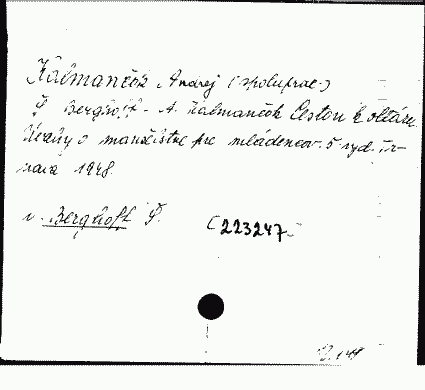 Kalmančok Andrej (spoluprac.)
Š. Berghoff - A. Kalmančok Cestou k oltáru
Úvahy o manželstve pre mládencov. 5. vyd. Tr-
nava 1948.
v. Berghoff Š. C 223247